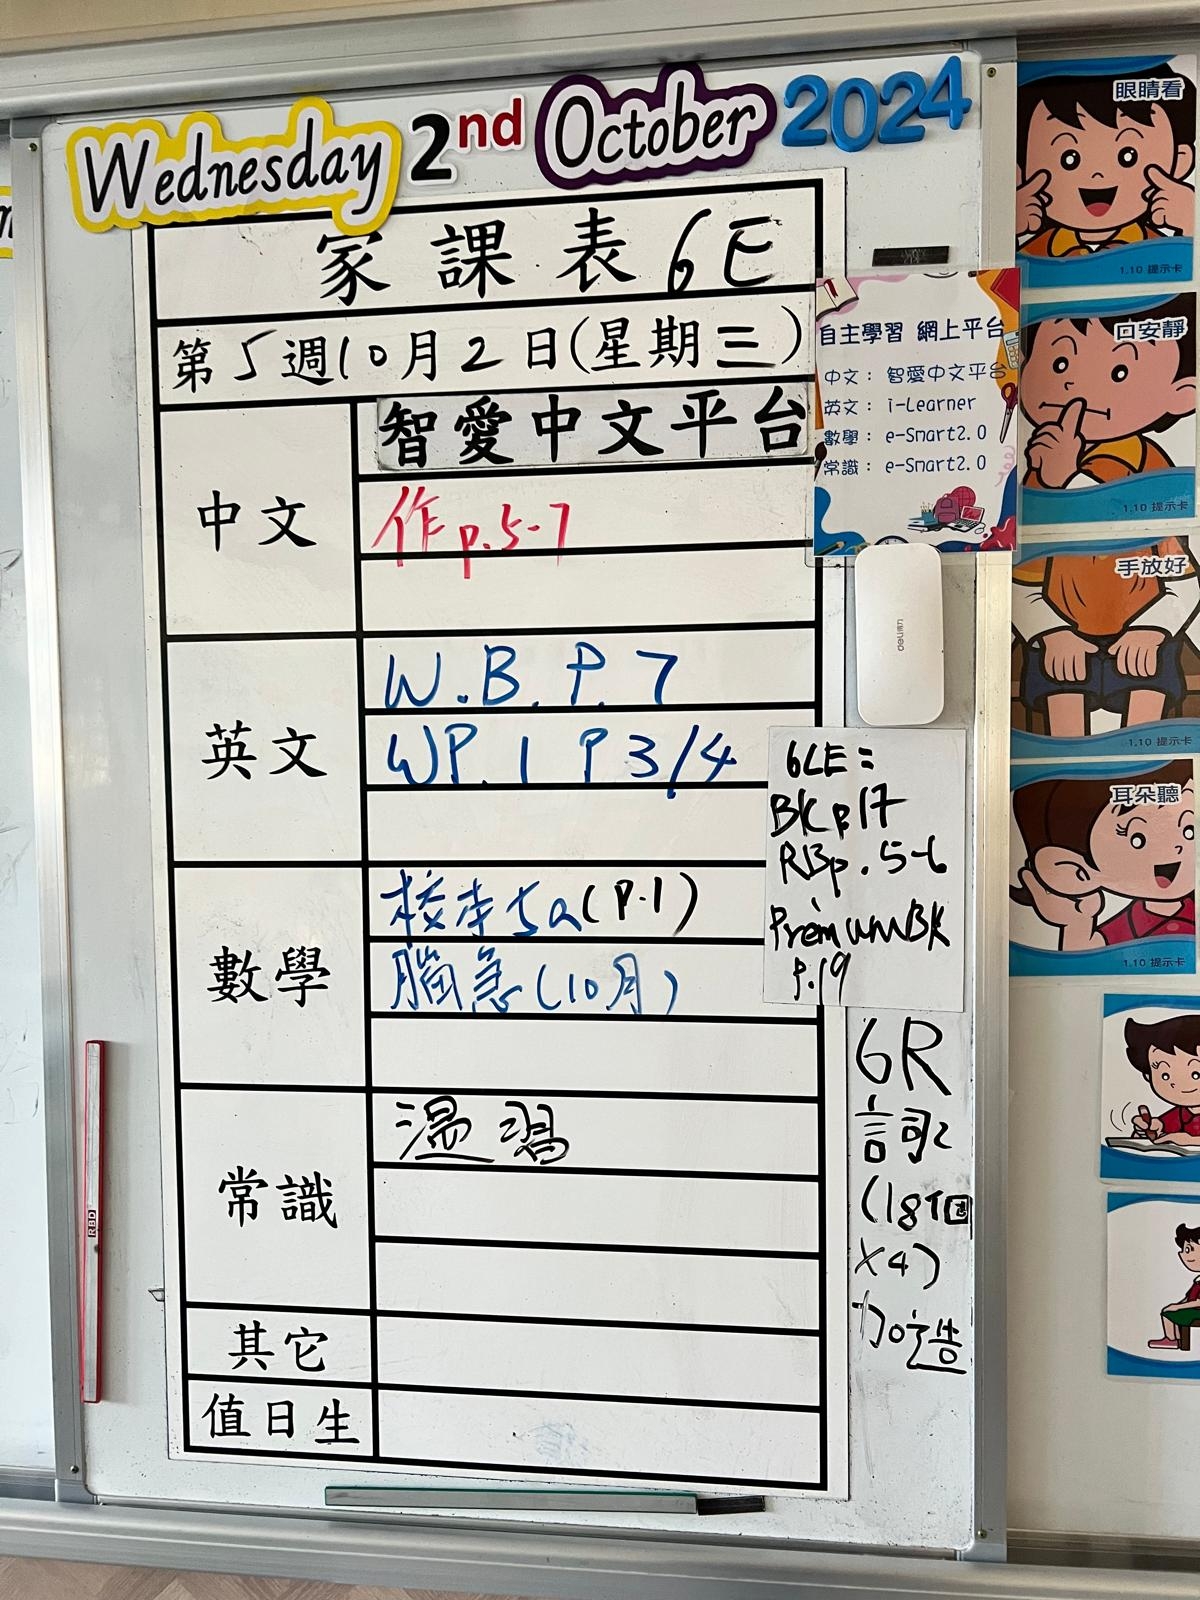 Wednesday 2nd October 2024
家課表 6E
第5週10月2日(星期三)
中文
智愛中文平台
作p.5-7
英文
W.B. P. 7
WP. 1 P 3/4
數學
校本5a(P.1)
腦急(10月)
常識
溫習
其它
值日生
自主學習 網上平台
中文： 智愛中文平台
英文： i-Learner
數學： e-Smart2.0
常識： e-Smart2.0
deli得力
6LE:
BK p17
RBp.5-6
PremiumBK
p.19
6R
詞2
(18個
X4)
加造
RBD
眼睛看
1.10 提示卡
口安靜
1.10 提示卡
手放好
1.10 提示卡
耳朵聽
1.10 提示卡